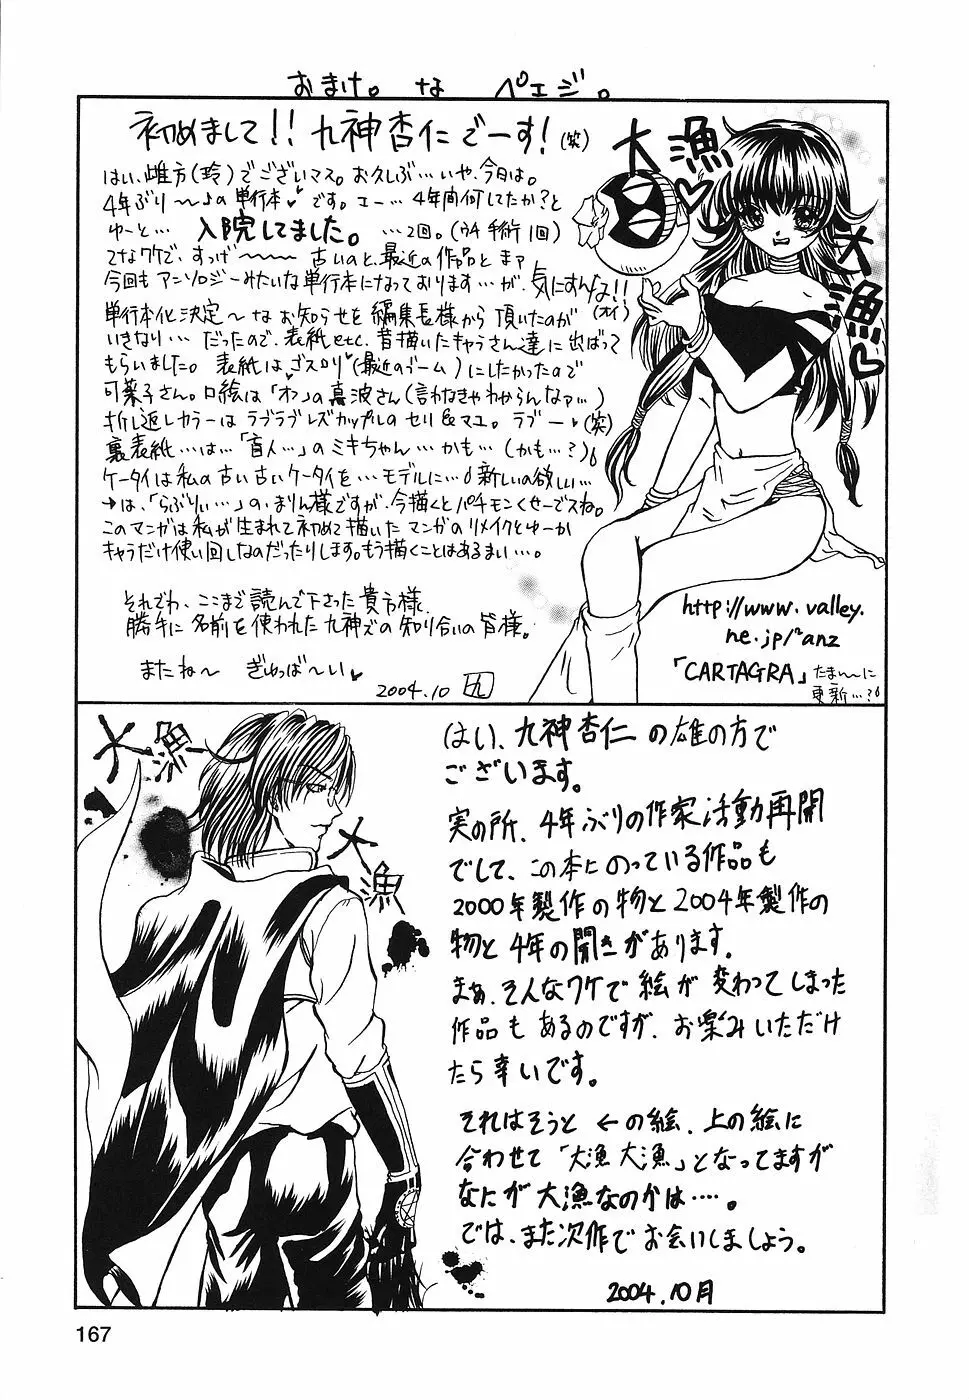 おまけ。 な ペエジ。
初めまして!! 九神杏仁でーす!(笑)
はい、雌方(玲)でございマス。お久しぶ…いや、今日は。
4年ぶり〜♪の単行本♥です。エー…4年間何してたか?と
ゆーと… 入院してました。 …2回。(ウチ手術1回)
てなワケで、すっげ〜〜〜古いのと、最近の作品とまァ
今回もアンソロジーみたいな単行本になっております…が、気にすんな!!
(オイ)
単行本化決定〜なお知らせを編集長様から頂いたのが
いきなり…だったので、表紙etc.昔描いたキャラさん達に出ばって
もらいました。表紙はゴスロリ♥(最近のブーム)にしたかったので
可菜子さん。口絵は「オン」の真波さん(言わなきゃわからんなァ…)
折し返しカラーはラブラブレズカップルのセリ&マユ。ラブー♥(笑)
裏表紙…は…「盲人…」のミキちゃん…かも…(かも…?)
ケータイは私の古い古いケータイを…モデルに…新しいの欲しい…
→は、「らぶりぃ…」の、まりん様ですが、今描くとパチモンくせーでスね。
このマンガは私が生まれて初めて描いたマンガのリメイクとゆーか
キャラだけ使い回しなのだったりします。もう描くことはあるまい…。
それでわ、ここまで読んで下さった貴方様、
勝手に名前を使われた九神ズの知り合いの皆様。
またね〜 ぎゅっば〜い♥
2004.10 九
大漁♥
大漁♥
http://www.valley.
ne.jp/~anz
「CARTAGRA」たま〜〜に
更新…?
大漁
大漁
はい、九神杏仁の雄の方で
ございます。
実の所、4年ぶりの作家活動再開
でして、この本にのっている作品も
2000年製作の物と2004年製作の
物と4年の開きがあります。
まぁ、そんなワケで絵が変わってしまった
作品もあるのですが、お楽みいただけ
たら幸いです。
それはそうと ←の絵、上の絵に
合わせて「大漁大漁」となってますが
なにが大漁なのかは…。
では、また次作でお会いしましょう。
2004.10月
167